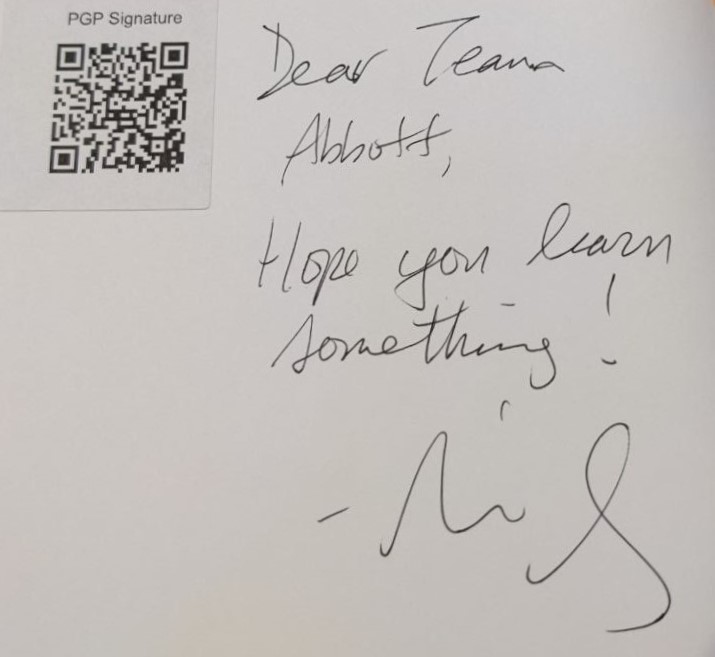 PGP Signature
Dear Team
Abbott,
Hope you learn
something!